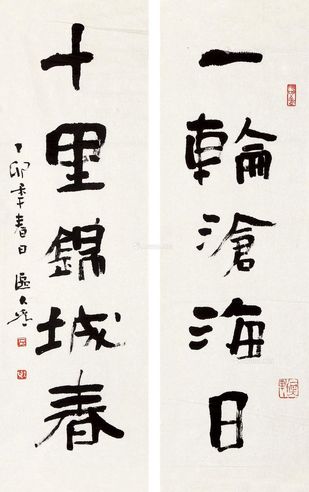 一輪滄海日
十里錦城春
丁卯年春日 區大為